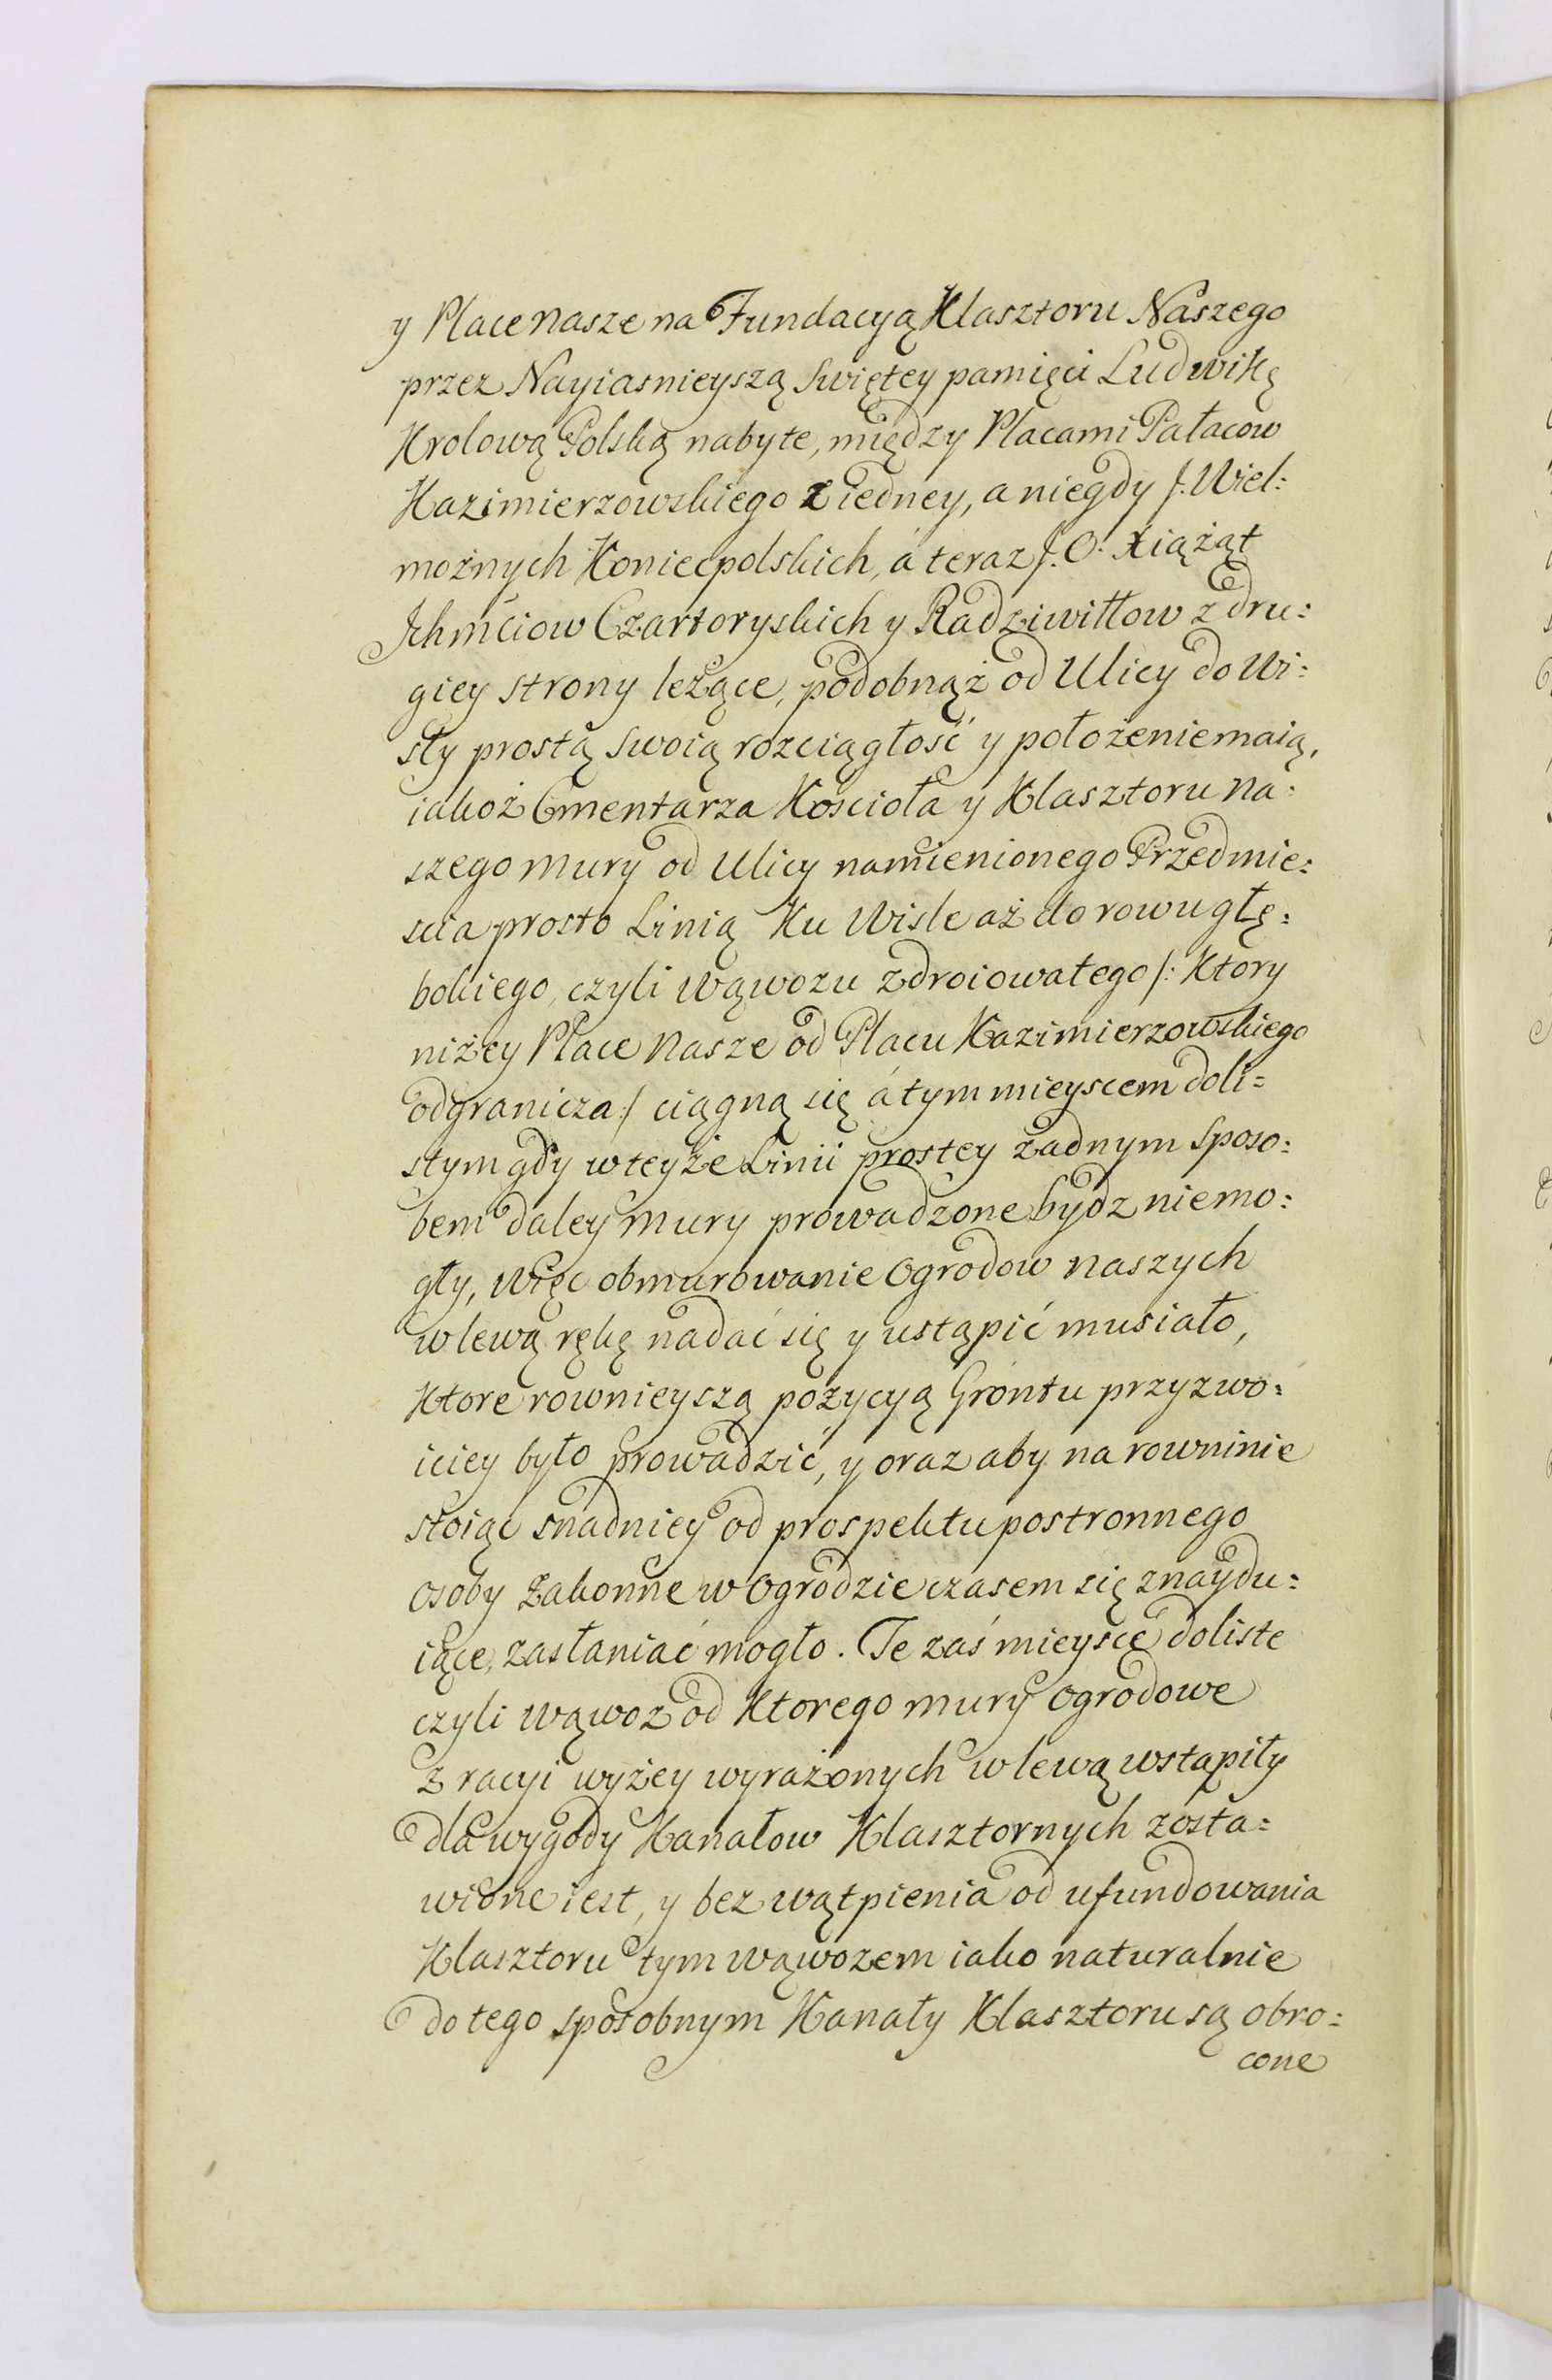 y Place nasze na Fundacyą Klasztoru Naszego
przez Nayiasnieyszą Swiętey pamięci Ludwikę
Krolową Polską nabyte, między Placami Pałacow
Kazimierzowskiego z iedney, a niegdy J. Wiel:
możnych Koniecpolskich, á teraz J. O. Xiążąt
Ichmciow Czartoryskich y Radziwiłłow z dru:
giey strony leżące, podobnąż od Ulicy do Wi:
sły prostą swoią rozciągłość y położenie maią,
iakoż Cmentarza Kościoła y Klasztoru na:
szego mury od Ulicy namienionego Przedmie:
scia prosto Linią Ku Wisle aż do rowu głę:
bokiego, czyli wąwozu zdroiowatego /: Ktory
niżey Place nasze od Placu Kazimierzowskiego
odgranicza :/ ciągną się á tym mieyscem doli=
stym gdy w teyże Linii prostey żadnym sposo:
bem daley mury prowadzone bydz niemo:
gły, więc obmurowanie Ogrodow naszych
w lewą rękę nadać się y ustąpić musiało,
Ktore rownieyszą pozycyą Gróntu przyzwo:
iciey było prowadzić, y oraz aby na rowninie
stoiąc snadniey od prospektu postronnego
osoby Zakonne w Ogrodzie czasem się znaydu:
iące, zasłaniać mogło. Te zaś mieysce doliste
czyli wąwoz od Ktorego mury ogrodowe
z racyi wyżey wyrażonych w lewą wstąpiły
dla wygody Kanałow Klasztornych zosta=
wione iest, y bez wątpienia od ufundowania
Klasztoru tym wąwozem iako naturalnie
do tego sposobnym Kanały Klasztoru są obro:
cone